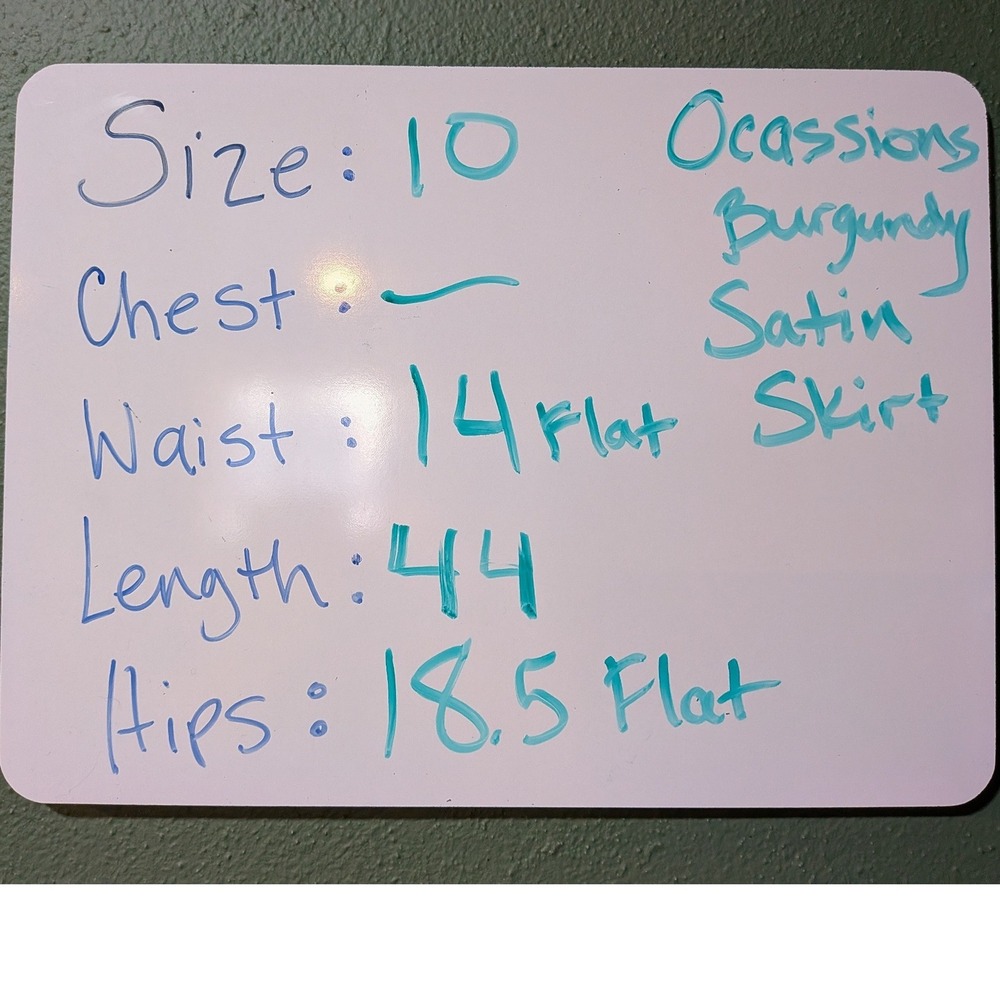 Size: 10
Chest: —
Waist: 14 Flat
Length: 44
Hips: 18.5 Flat
Ocassions
Burgundy
Satin
Skirt